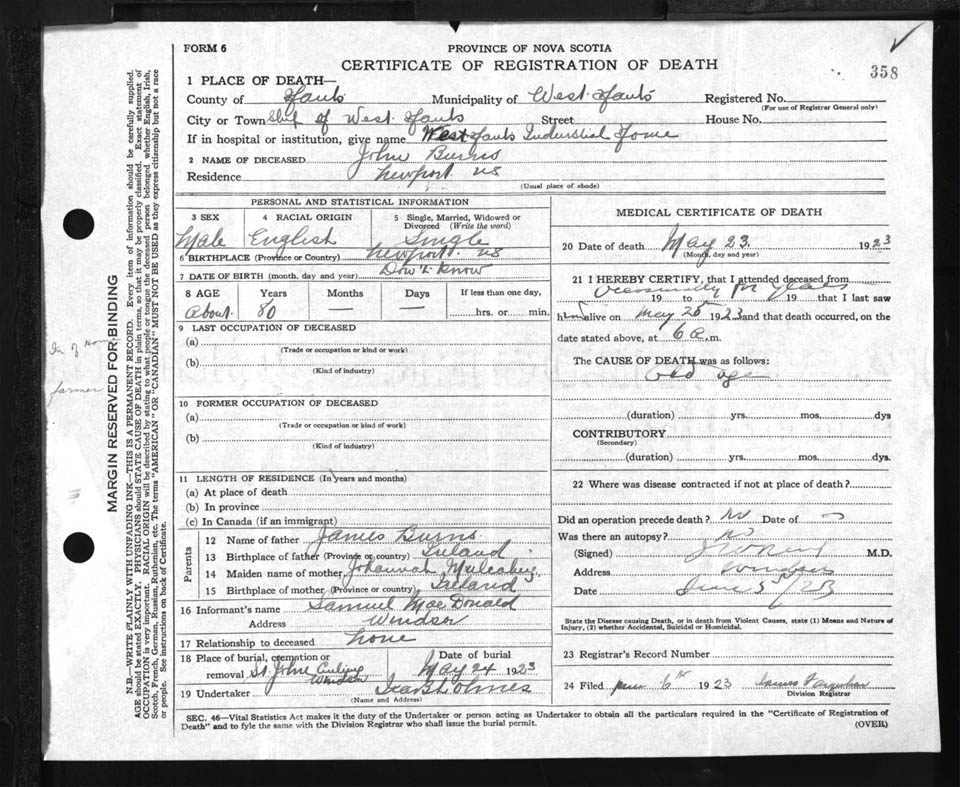 FORM 6
PROVINCE OF NOVA SCOTIA
CERTIFICATE OF REGISTRATION OF DEATH
358
1 PLACE OF DEATH—
County of Hants Municipality of West Hants Registered No.
(For use of Registrar General only)
City or Town of West Hants Street House No.
If in hospital or institution, give name West Hants Industrial Home
2 NAME OF DECEASED John Burns
Residence Newport NS
(Usual place of abode)
PERSONAL AND STATISTICAL INFORMATION
3 SEX 4 RACIAL ORIGIN 5 Single, Married, Widowed or Divorced (Write the word)
Male English Single
6 BIRTHPLACE (Province or Country) Newport NS
7 DATE OF BIRTH (month, day and year) Don't Know
8 AGE Years Months Days If less than one day,
About 80 — — hrs. or min.
9 LAST OCCUPATION OF DECEASED
(a)
(Trade or occupation or kind of work)
(b)
(Kind of industry)
10 FORMER OCCUPATION OF DECEASED
(a)
(Trade or occupation or kind of work)
(b)
(Kind of industry)
11 LENGTH OF RESIDENCE (In years and months)
(a) At place of death
(b) In province
(c) In Canada (if an immigrant)
Parents
12 Name of father James Burns
13 Birthplace of father (Province or country) Ireland
14 Maiden name of mother Johannah
15 Birthplace of mother (Province or country) Ireland
16 Informant's name Samuel MacDonald
Address Windsor
17 Relationship to deceased None
18 Place of burial, cremation or removal St. Johns Windsor
Date of burial May 24 1923
19 Undertaker Holmes
(Name and Address)
MEDICAL CERTIFICATE OF DEATH
20 Date of death May 23 1923
(Month, day and year)
21 I HEREBY CERTIFY, that I attended deceased from
for years
19 to 19 that I last saw
h alive on May 1923 and that death occurred, on the
date stated above, at 6 a.m.
The CAUSE OF DEATH was as follows:
Old age
(duration) yrs. mos. dys
CONTRIBUTORY
(Secondary)
(duration) yrs. mos. dys.
22 Where was disease contracted if not at place of death?
Did an operation precede death? No Date of
Was there an autopsy? No
(Signed) M.D.
Address Windsor
Date June 5/23
State the Disease causing Death, or in death from Violent Causes, state (1) Means and Nature of Injury, (2) whether Accidental, Suicidal or Homicidal.
23 Registrar's Record Number
24 Filed June 6th 1923 James
Division Registrar
SEC. 46—Vital Statistics Act makes it the duty of the Undertaker or person acting as Undertaker to obtain all the particulars required in the "Certificate of Registration of
Death" and to fyle the same with the Division Registrar who shall issue the burial permit.
(OVER)
MARGIN RESERVED FOR BINDING
N.B.—WRITE PLAINLY WITH UNFADING INK—THIS IS A PERMANENT RECORD. Every item of information should be carefully supplied.
AGE should be stated EXACTLY. PHYSICIANS should STATE CAUSE OF DEATH in plain terms, so that it may be properly classified. Exact statement of
OCCUPATION is very important. RACIAL ORIGIN will be described by stating to what people or tongue the deceased person belonged whether English, Irish,
Scotch, French, German, Russian, Ruthenian, etc. The terms "AMERICAN" OR "CANADIAN" MUST NOT BE USED as they express citizenship but not a race
or people. See instructions on back of Certificate.
In of Home
farmer